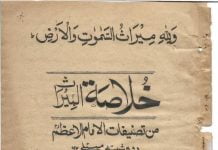 وَلِلّٰهِ مِيْرَاثُ السَّمٰوٰتِ وَالْاَرْضِ
خُلاصَةُ المِيْرَاث
من تصنيفات الامام الاعظم